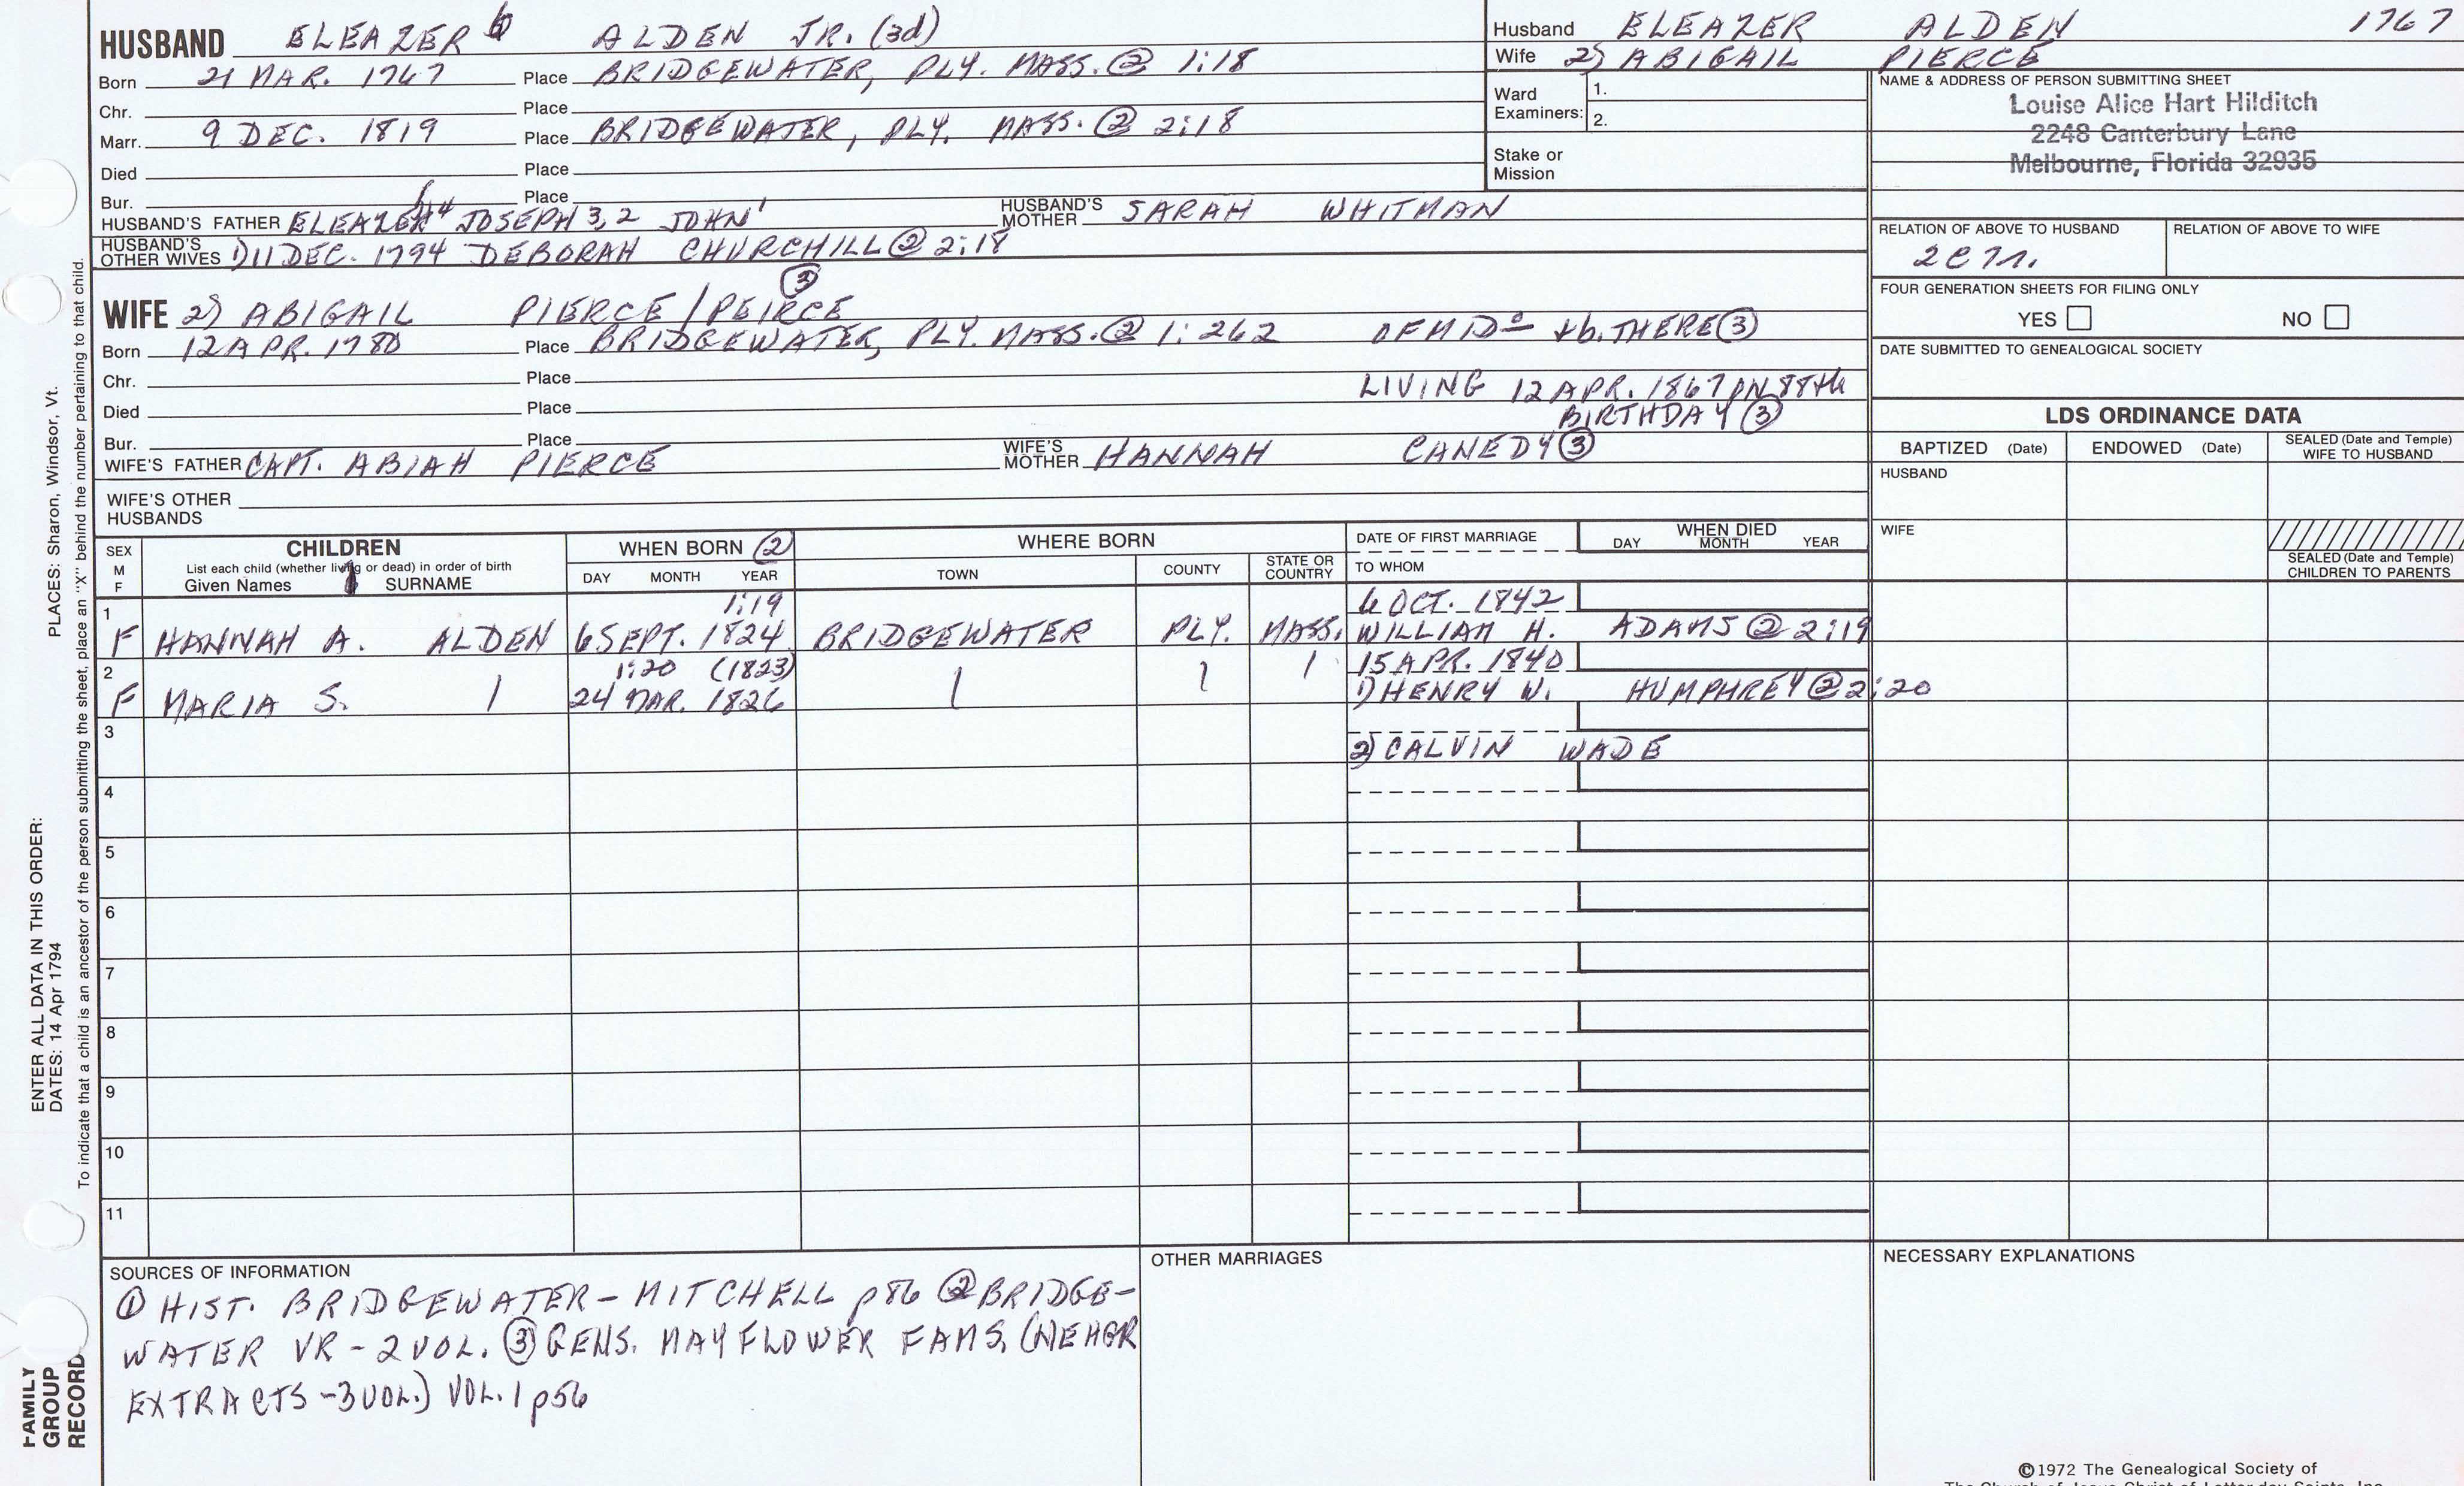 HUSBAND ELEAZER 6 ALDEN JR. (3d)
Born 21 MAR. 1767 Place BRIDGEWATER, PLY. MASS. ② 1:18
Chr. Place
Marr. 9 DEC. 1819 Place BRIDGEWATER, PLY. MASS. ② 2:18
Died Place
Bur. Place
HUSBAND'S FATHER ELEAZER 4 JOSEPH 3, 2 JOHN 1 HUSBAND'S MOTHER SARAH WHITMAN
HUSBAND'S OTHER WIVES 1) 11 DEC. 1794 DEBORAH CHURCHILL ② 2:18
Husband ELEAZER ALDEN 1767
Wife 2) ABIGAIL PIERCE
Ward Examiners: 1.
2.
Stake or Mission
NAME & ADDRESS OF PERSON SUBMITTING SHEET
Louise Alice Hart Hilditch
2248 Canterbury Lane
Melbourne, Florida 32935
RELATION OF ABOVE TO HUSBAND RELATION OF ABOVE TO WIFE
2C7r.
FOUR GENERATION SHEETS FOR FILING ONLY
YES NO
DATE SUBMITTED TO GENEALOGICAL SOCIETY
③
WIFE 2) ABIGAIL PIERCE / PEIRCE
Born 12 APR. 1780 Place BRIDGEWATER, PLY. MASS. ② 1:262 OF MIDo + b. THERE ③
Chr. Place
LIVING 12 APR. 1867 ON 88th
Died Place
BIRTHDAY ③
Bur. Place
WIFE'S FATHER CAPT. ABIAH PIERCE WIFE'S MOTHER HANNAH CANEDY ③
WIFE'S OTHER HUSBANDS
LDS ORDINANCE DATA
BAPTIZED (Date) ENDOWED (Date) SEALED (Date and Temple) WIFE TO HUSBAND
HUSBAND
WIFE
SEALED (Date and Temple) CHILDREN TO PARENTS
SEX M F
CHILDREN
List each child (whether living or dead) in order of birth
Given Names SURNAME
WHEN BORN ②
DAY MONTH YEAR
WHERE BORN
TOWN COUNTY STATE OR COUNTRY
DATE OF FIRST MARRIAGE
TO WHOM
WHEN DIED
DAY MONTH YEAR
1 1:19 6 OCT. 1842
F HANNAH A. ALDEN 6 SEPT. 1824 BRIDGEWATER PLY. MASS. WILLIAM H. ADAMS ② 2:19
2 1:20 (1823) 15 APR. 1840
F MARIA S. 24 MAR. 1826 1) HENRY W. HUMPHREY ② 2:20
3
2) CALVIN WADE
4
5
6
7
8
9
10
11
SOURCES OF INFORMATION
① HIST. BRIDGEWATER - MITCHELL p86 ② BRIDGE-
WATER VR - 2 VOL. ③ GENS. MAYFLOWER FAMS. (NEHGR
EXTRACTS - 3 VOL.) VOL. 1 p56
OTHER MARRIAGES
NECESSARY EXPLANATIONS
©1972 The Genealogical Society of
The Church of Jesus Christ of Latter-day Saints, Inc.
PLACES: Sharon, Windsor, Vt.
ENTER ALL DATA IN THIS ORDER:
DATES: 14 Apr 1794
To indicate that a child is an ancestor of the person submitting the sheet, place an "X" behind the number pertaining to that child.
FAMILY
GROUP
RECORD